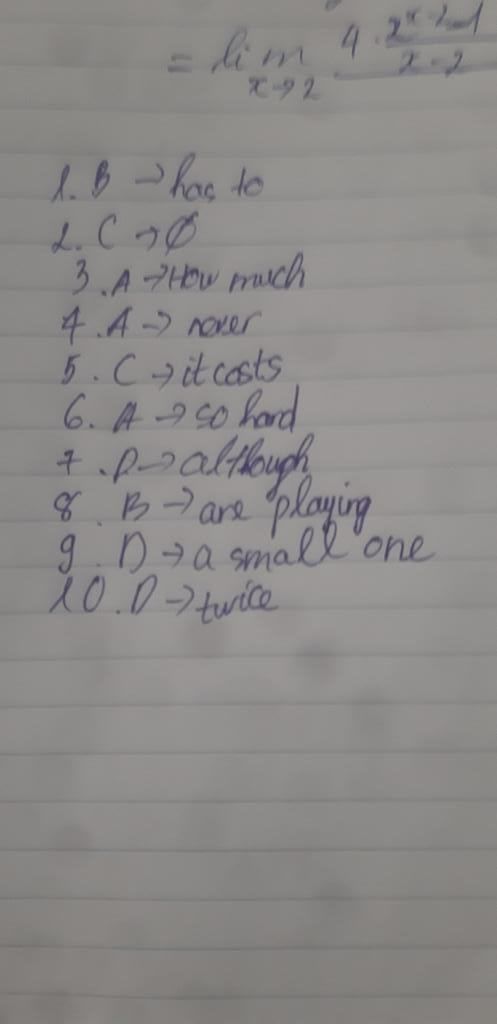 = lim x→2 4 · (2^(x-2) - 1)/(x-2)
1. B → has to
2. C → Ø
3. A → How much
4. A → never
5. C → it costs
6. A → so hard
7. D → although
8. B → are playing
9. D → a small one
10. D → twice